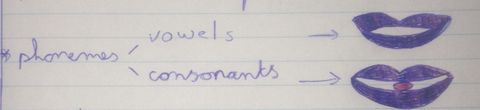 vowels →
* phonemes
consonants →